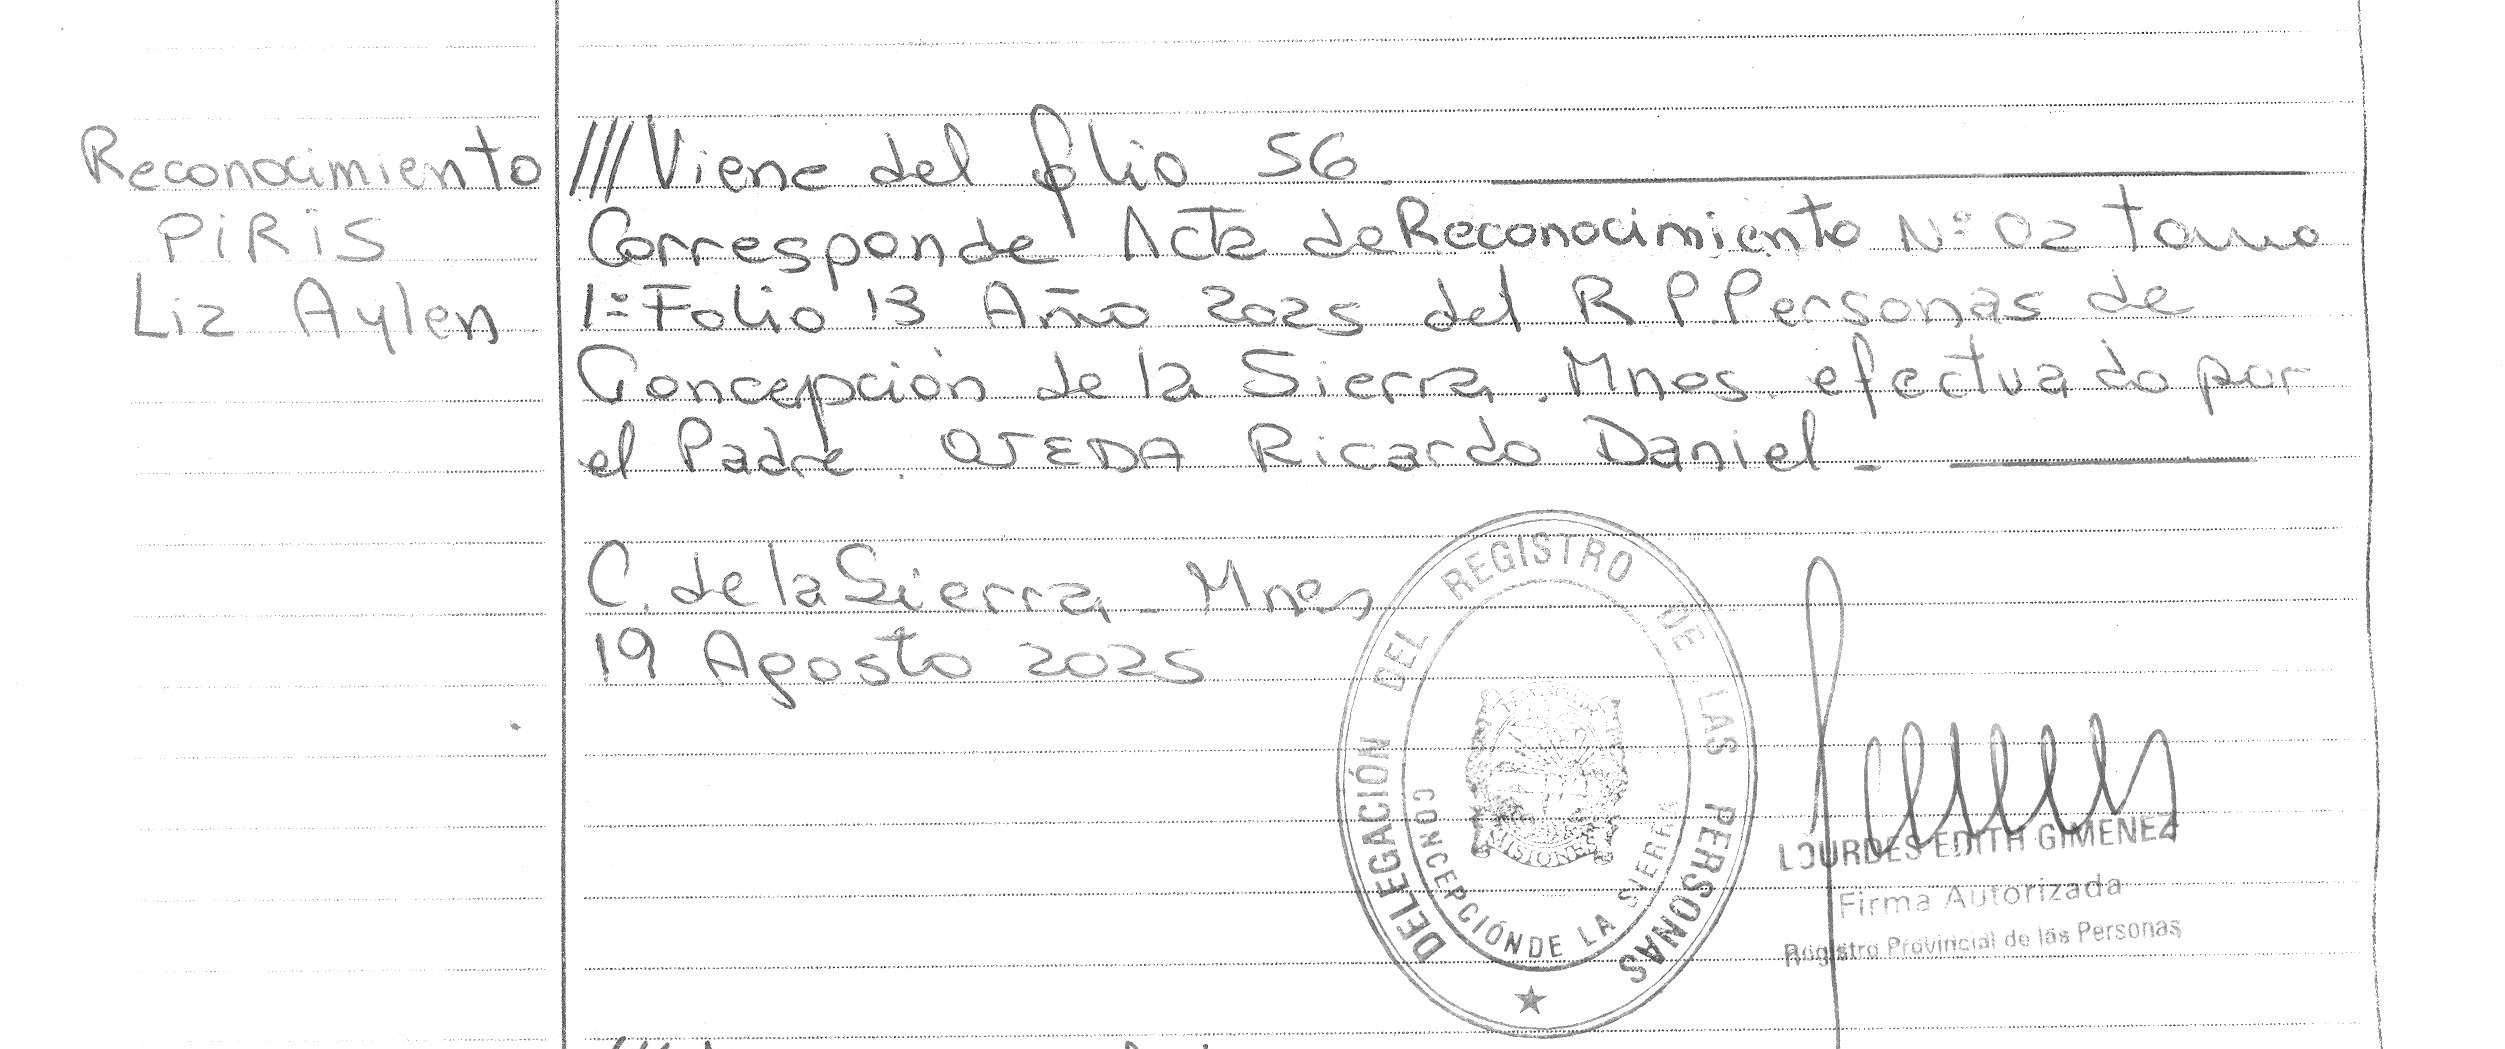 Reconocimiento
PiRiS
Liz Aylen
///Viene del folio 56.
Corresponde Acta de Reconocimiento N° 02 tomo
1° Folio 13 Año 2025 del R P. Personas de
Concepción de la Sierra. Mnes. efectuado por
el Padre. OJEDA Ricardo Daniel -
C. de la Sierra - Mnes
19 Agosto 2025
DELEGACIÓN DEL REGISTRO DE LAS PERSONAS
CONCEPCIÓN DE LA SIERRA
MISIONES
LOURDES EDITH GIMENEZ
Firma Autorizada
Registro Provincial de las Personas